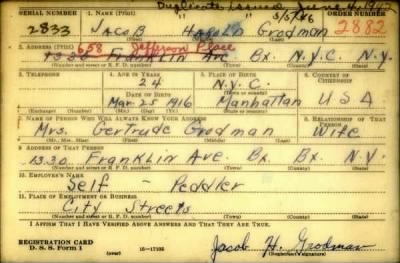 Duplicate issued June 4, 1942
SERIAL NUMBER 1. NAME (Print) ORDER NUMBER
2833 JACOB Harold Grodman 2882
2. ADDRESS (Print)
658 Jefferson Place
1330 Franklin Ave Bx. N.Y.C. N.Y.
(Number and street or R. F. D. number) (Town) (County) (State)
3. TELEPHONE 4. AGE IN YEARS 5. PLACE OF BIRTH 6. COUNTRY OF CITIZENSHIP
24 N.Y.C.
DATE OF BIRTH
Mar. 25 1916 Manhattan USA
(Exchange) (Number) (Mo.) (Day) (Yr.) (Town or county) (State or country)
7. NAME OF PERSON WHO WILL ALWAYS KNOW YOUR ADDRESS 8. RELATIONSHIP OF THAT PERSON
Mrs. Gertrude Grodman Wife
(Mr., Mrs., Miss) (First) (Middle) (Last)
9. ADDRESS OF THAT PERSON
1330 Franklin Ave. Bx. Bx. N.Y.
(Number and street or R. F. D. number) (Town) (County) (State)
10. EMPLOYER'S NAME
Self - Peddler
11. PLACE OF EMPLOYMENT OR BUSINESS
City Streets
(Number and street or R. F. D. number) (Town) (County) (State)
I AFFIRM THAT I HAVE VERIFIED ABOVE ANSWERS AND THAT THEY ARE TRUE.
REGISTRATION CARD
D. S. S. Form 1 (over) 16-17105 Jacob H. Grodman
(Registrant's signature)